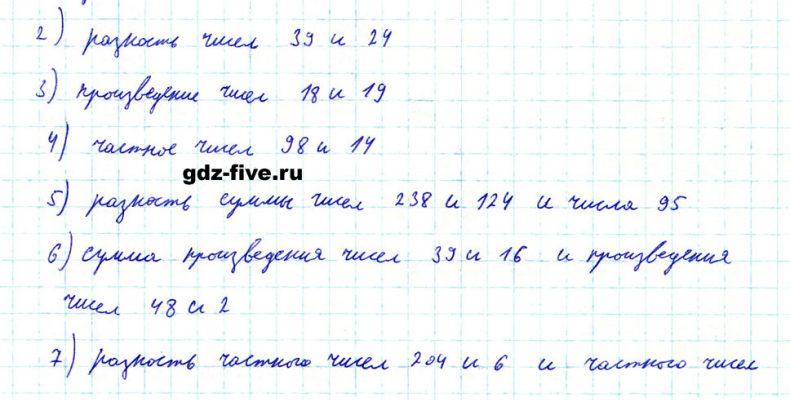 2) разность чисел 39 и 24
3) произведение чисел 18 и 19
4) частное чисел 98 и 14
gdz-five.ru
5) разность суммы чисел 238 и 124 и числа 95
6) сумма произведения чисел 39 и 16 и произведения
чисел 48 и 2
7) разность частного чисел 204 и 6 и частного чисел